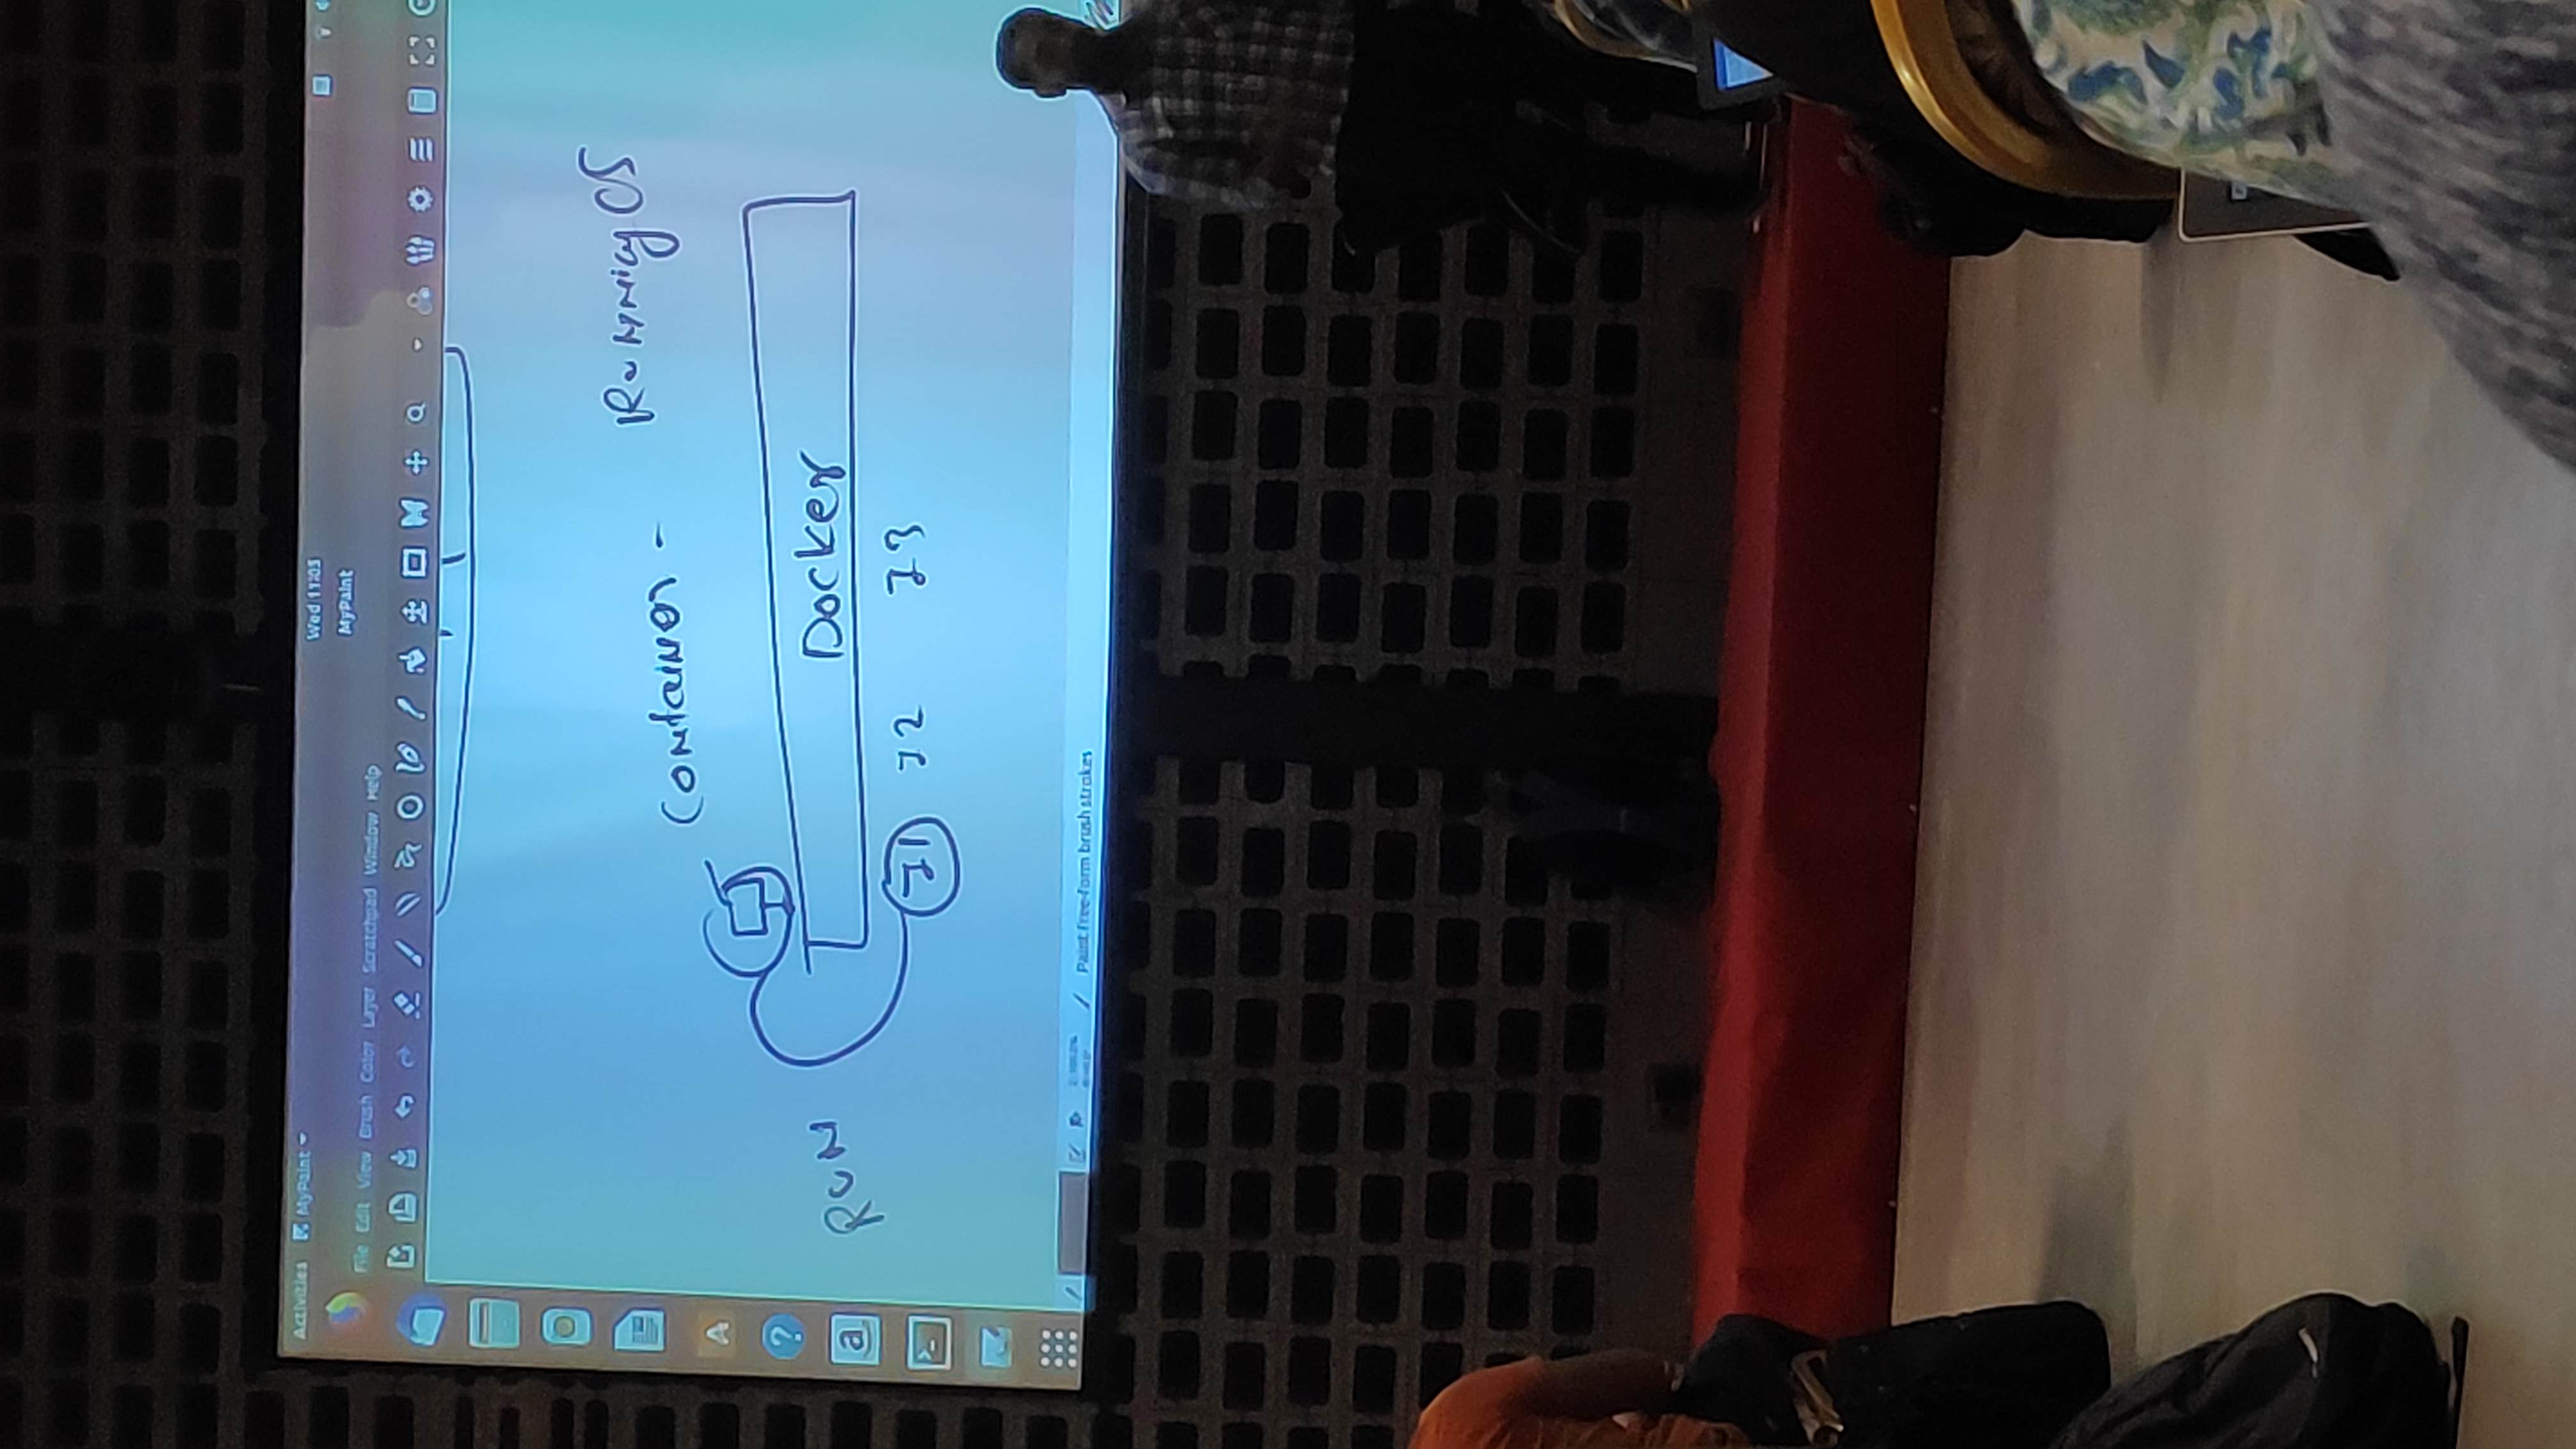 Activities MyPaint
Wed 11:05
MyPaint
File Edit View Brush Color Layer Scratchpad Window Help
Container - Running OS
RUN
Docker
I1 I2 I3
Paint free-form brush strokes